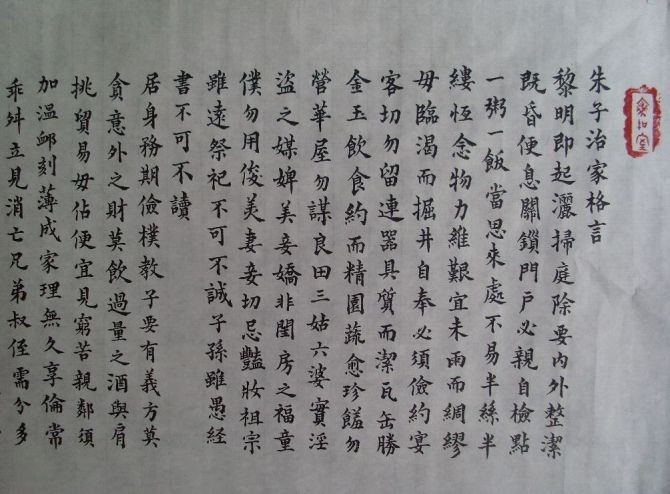 朱子治家格言
黎明即起灑掃庭除要內外整潔
既昏便息關鎖門戶必親自檢點
一粥一飯當思來處不易半絲半
縷恆念物力維艱宜未雨而綢繆
毋臨渴而掘井自奉必須儉約宴
客切勿留連器具質而潔瓦缶勝
金玉飲食約而精園蔬愈珍饈勿
營華屋勿謀良田三姑六婆實淫
盜之媒婢美妾嬌非閨房之福童
僕勿用俊美妻妾切忌豔妝祖宗
雖遠祭祀不可不誠子孫雖愚經
書不可不讀
居身務期儉樸教子要有義方莫
貪意外之財莫飲過量之酒與肩
挑貿易毋佔便宜見窮苦親鄰須
加温卹刻薄成家理無久享倫常
乖舛立見消亡兄弟叔侄需分多